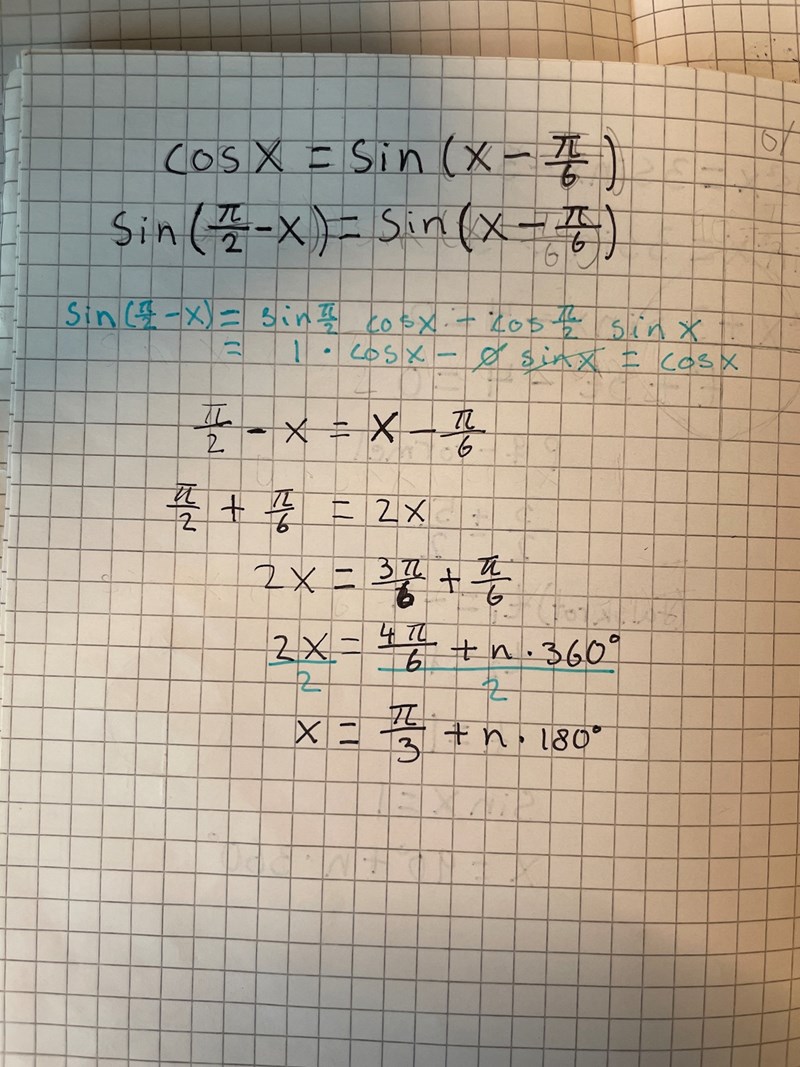 cos x = sin (x - π/6)
sin (π/2 - x) = sin (x - π/6)
sin (π/2 - x) = sin π/2 cos x - cos π/2 sin x
= 1 · cos x - 0 sin x = cos x
π/2 - x = x - π/6
π/2 + π/6 = 2x
2x = 3π/6 + π/6
2x/2 = (4π/6 + n · 360°)/2
x = π/3 + n · 180°